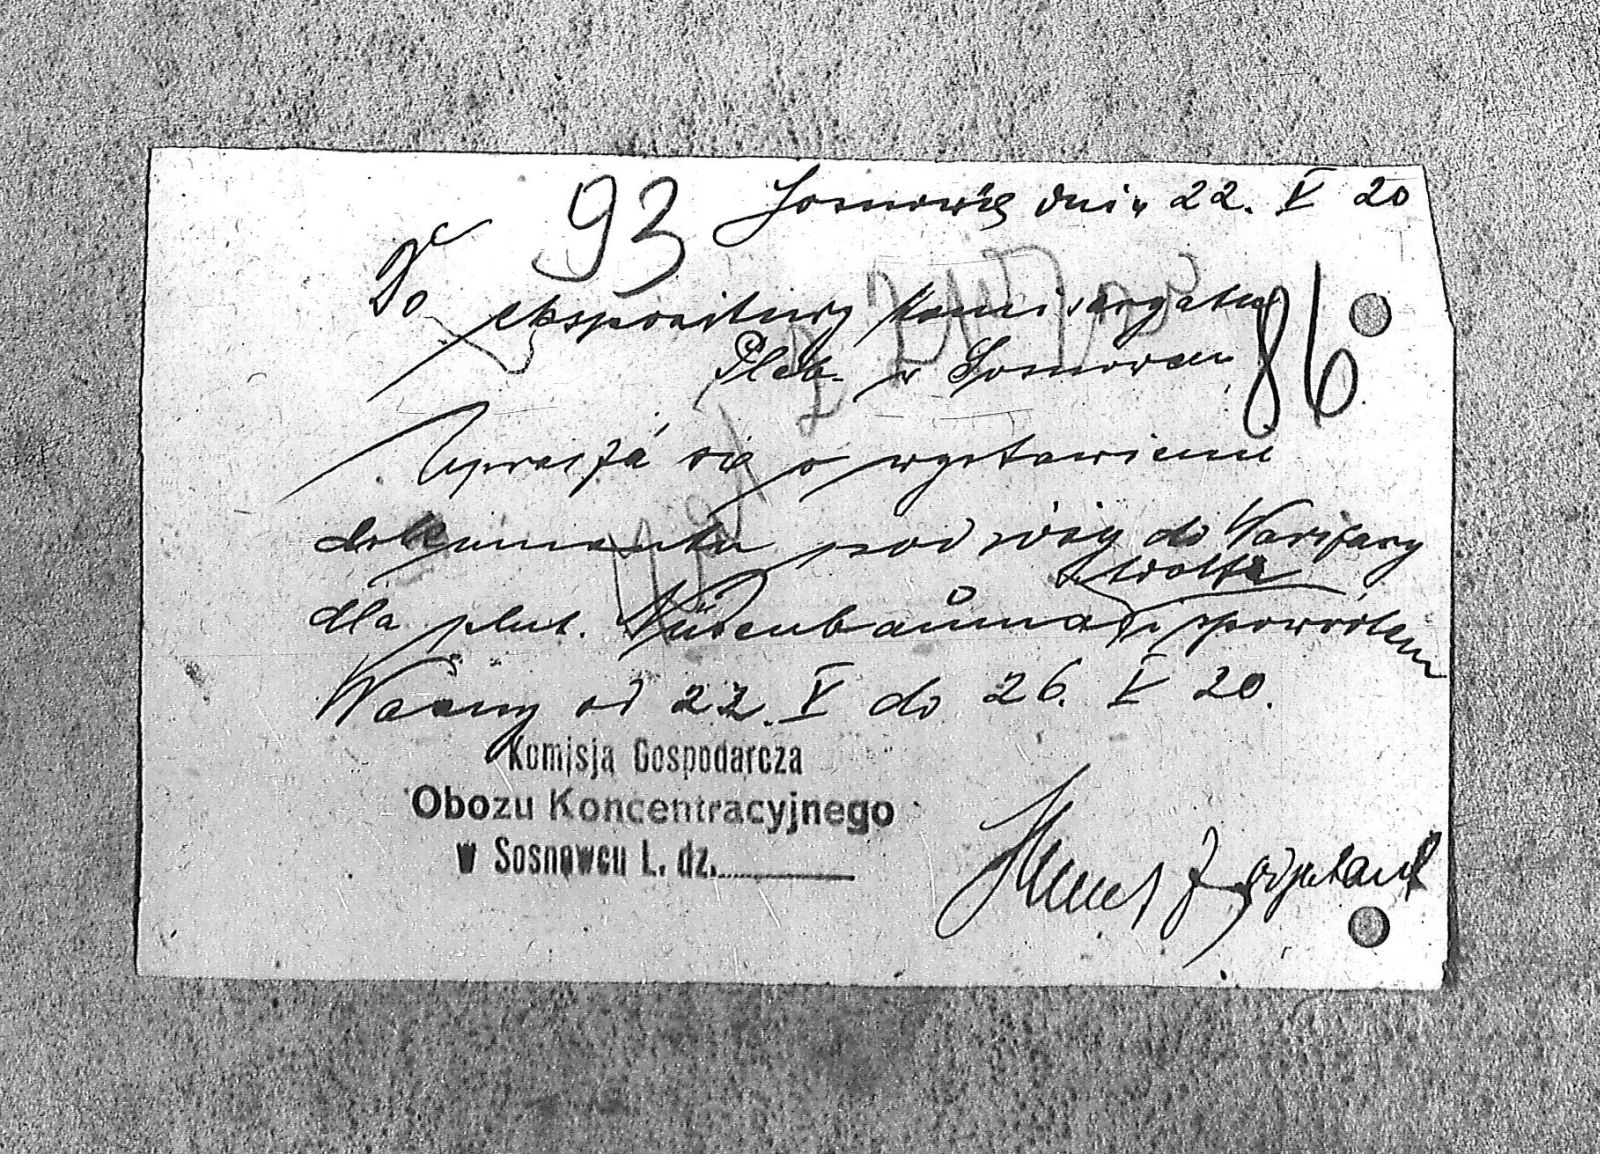 93
Sosnowiec dnia 22. V 20
Do
ekspozitury Komisaryatu
Pleb. w Sosnowcu
86
Uprasza się o wystawienie
dokumentu podróży do Warszawy
dla plut. Nüsenbauma i spowrotem
Ważny od 22. V do 26. V 20.
Komisja Gospodarcza
Obozu Koncentracyjnego
w Sosnowcu L. dz.
adjutant